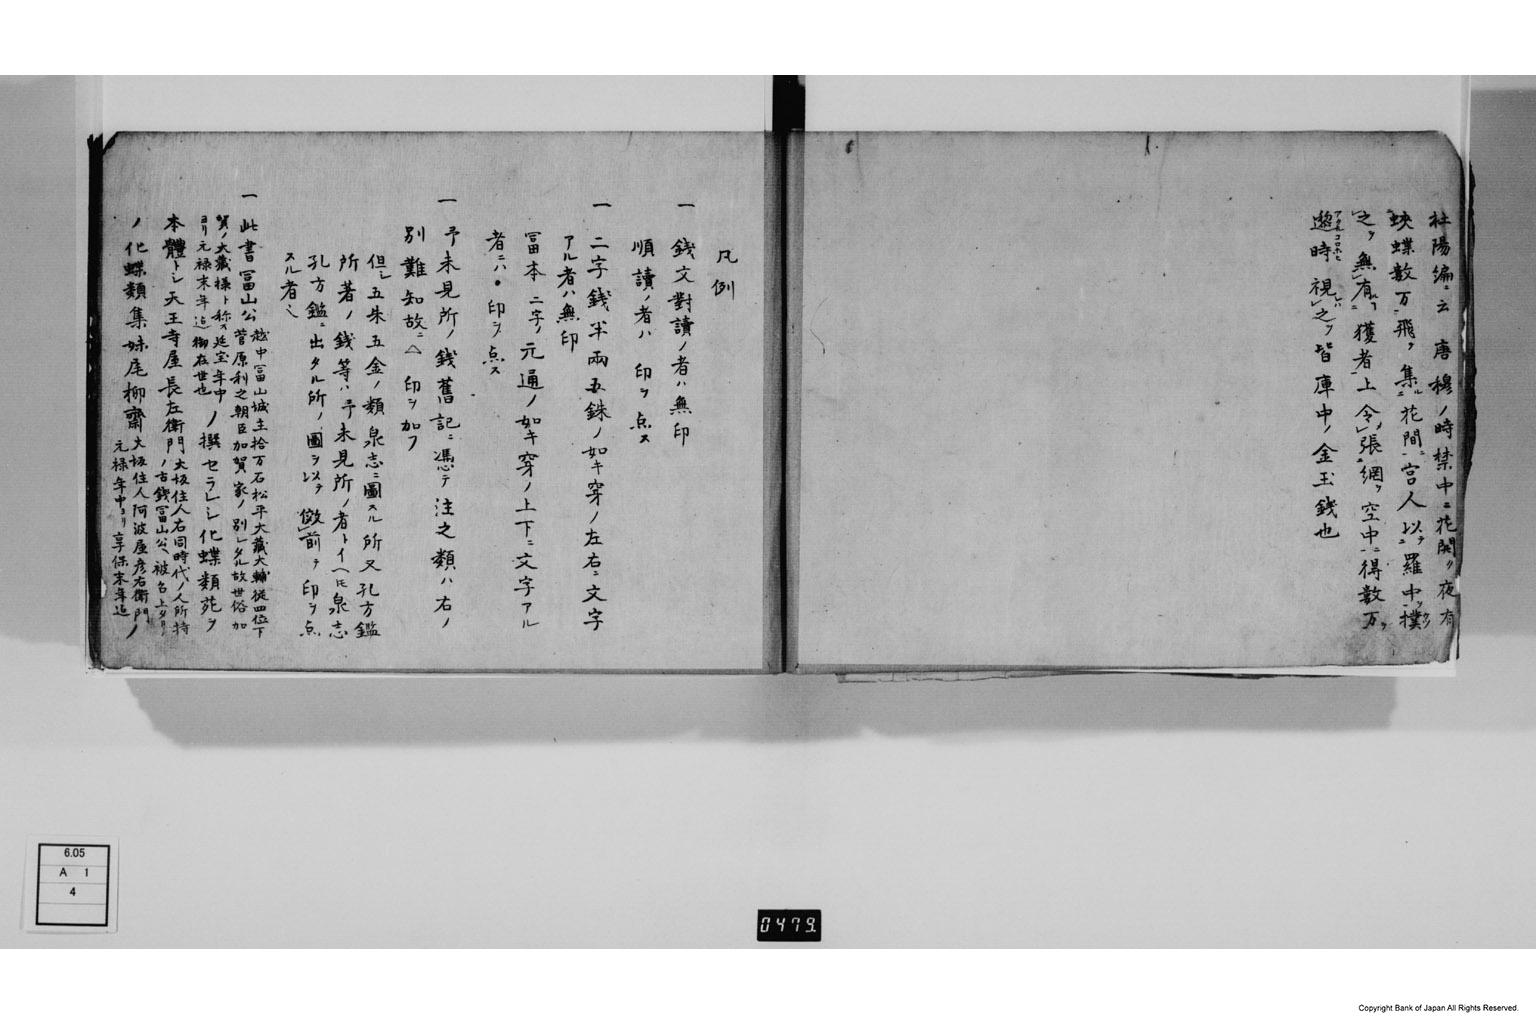 杜陽編ニ云唐穆ノ時禁中ニ花開ク夜有
蛺蝶数万飛ヲ集ル花間ニ宮人以テ羅巾ヲ撲ク
之ヲ無シ有獲者上令張網ヲ空中ニ得数万ヲ
遲時視レハ之ヲ皆庫中ノ金玉銭也
凡例
一 銭文對讀ノ者ハ無印
順讀ノ者ハ 印ヲ点ス
一 二字銭半兩五銖ノ如キ穿ノ左右ニ文字
アル者ハ無印
冨本二字ノ元通ノ如キ穿ノ上下ニ文字アル
者ニハ●印ヲ点ス
一 予未見所ノ銭舊記ニ憑テ注之類ハ右ノ
別難知故ニ△印ヲ加フ
但シ五朱五金ノ類泉志ニ圖スル所又孔方鑑
所著ノ銭等ハ予未見所ノ者トイヘ𪜈泉志
孔方鑑ニ出タル所ノ圖ヲ以テ倣前ヲ印ヲ点
スル者也
一 此書冨山公
越中冨山城主拾万石松平大藏大輔従四位下
菅原利之朝臣加賀家ノ別レタル故世俗加
賀ノ大藏様ト称ス延宝年中
ヨリ元禄末年迄御在世也
ノ撰セラレシ化蝶類苑ヲ
本體トシ天王寺屋長左衛門
大坂住人右同時代ノ人所持
ノ古銭冨山公ヘ被召上タリ
ノ
化蝶類集妹尾柳齋
大坂住人阿波屋彦右衛門
元禄年中ヨリ享保末年迄
ノ
6.05
A 1
4
0479.
Copyright Bank of Japan All Rights Reserved.